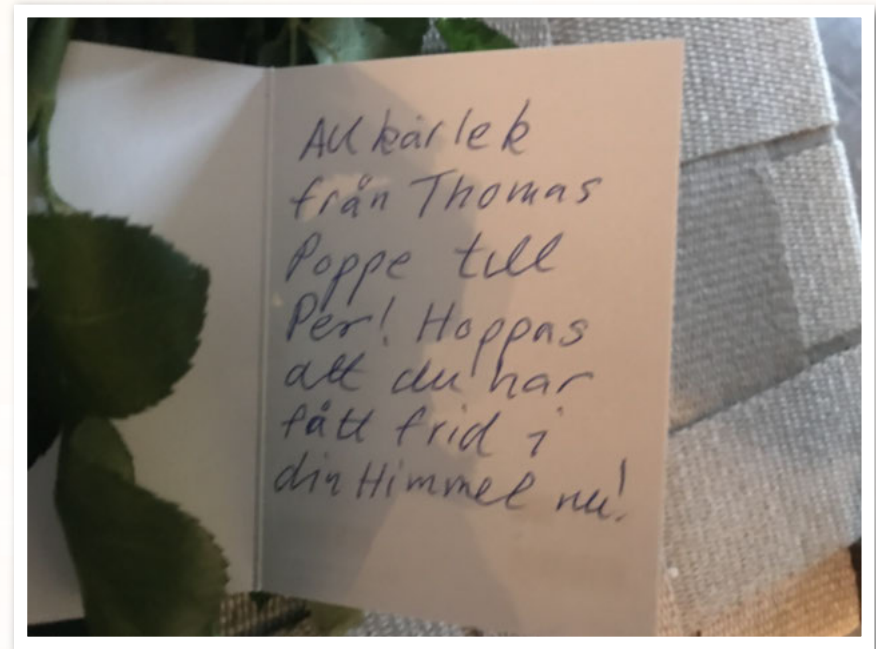 All kärlek
från Thomas
Poppe till
Per! Hoppas
att du har
fått frid i
din Himmel nu!